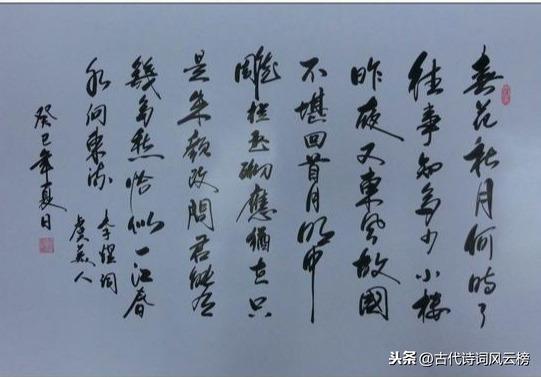 春花秋月何时了
往事知多少小樓
昨夜又東風故國
不堪回首月明中
雕栏玉砌應猶在只
是朱顏改問君能有
幾多愁恰似一江春
水向東流
李煜詞
虞美人
癸巳年夏日
头条 @古代诗词风云榜